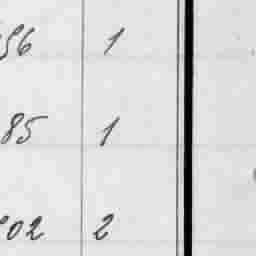 56 1
85 1
02 2